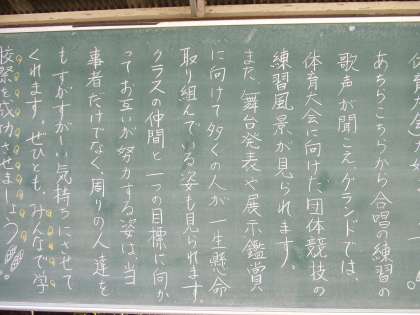 体育
あちらこちらから合唱の練習の
歌声が聞こえ、グランドでは、
体育大会に向けた団体競技の
練習風景が見られます。
また、舞台発表や展示鑑賞
に向けて多くの人が一生懸命
取り組んでいる姿も見られます。
クラスの仲間と一つの目標に向か
ってお互いが努力する姿は、当
事者だけでなく、周りの人達を
もすがすがしい気持ちにさせて
くれます。ぜひとも、みんなで学
校祭を成功させましょう